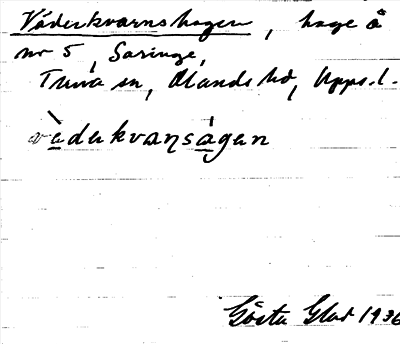 Väderkvarnshagen, hage å
nr 5, Saringe,
Tuna sn, Olands hd, Upps. l.
vädekvaɳságen
Gösta Glad 1936